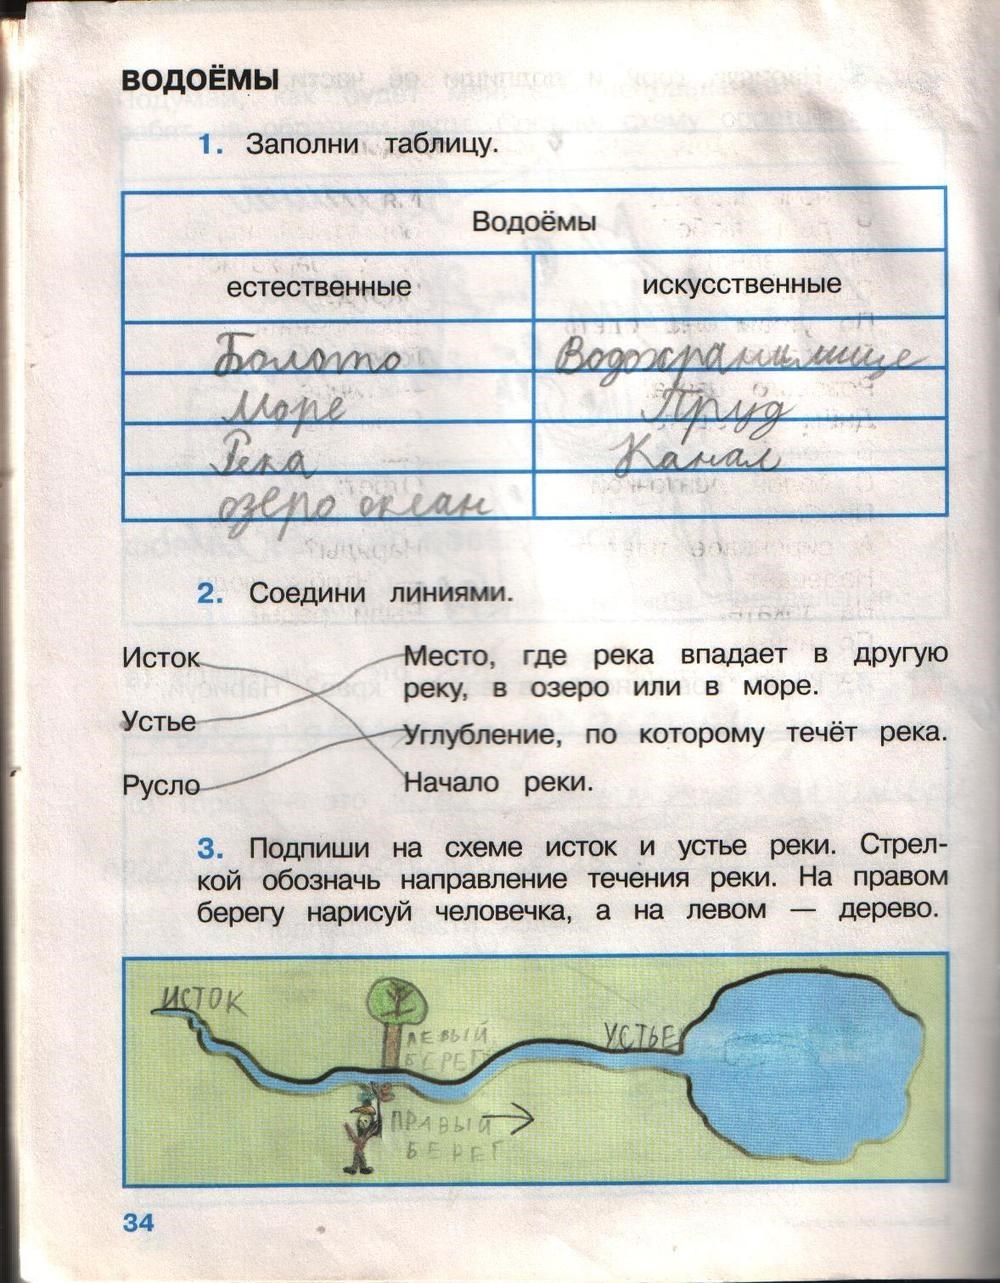 ВОДОЁМЫ
1. Заполни таблицу.
Водоёмы
естественные искусственные
Болото Водохранилище
Море Пруд
Река Канал
озеро океан
2. Соедини линиями.
Исток Место, где река впадает в другую
реку, в озеро или в море.
Устье
Углубление, по которому течёт река.
Русло Начало реки.
3. Подпиши на схеме исток и устье реки. Стрел-
кой обозначь направление течения реки. На правом
берегу нарисуй человечка, а на левом — дерево.
ИСТОК
ЛЕВЫЙ
БЕРЕГ
УСТЬЕ
ПРАВЫЙ
БЕРЕГ
34